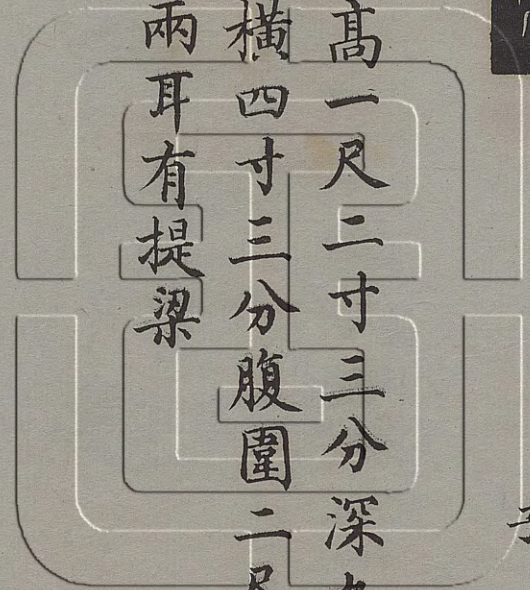 高一尺二寸三分深
橫四寸三分腹圍二尺
兩耳有提梁